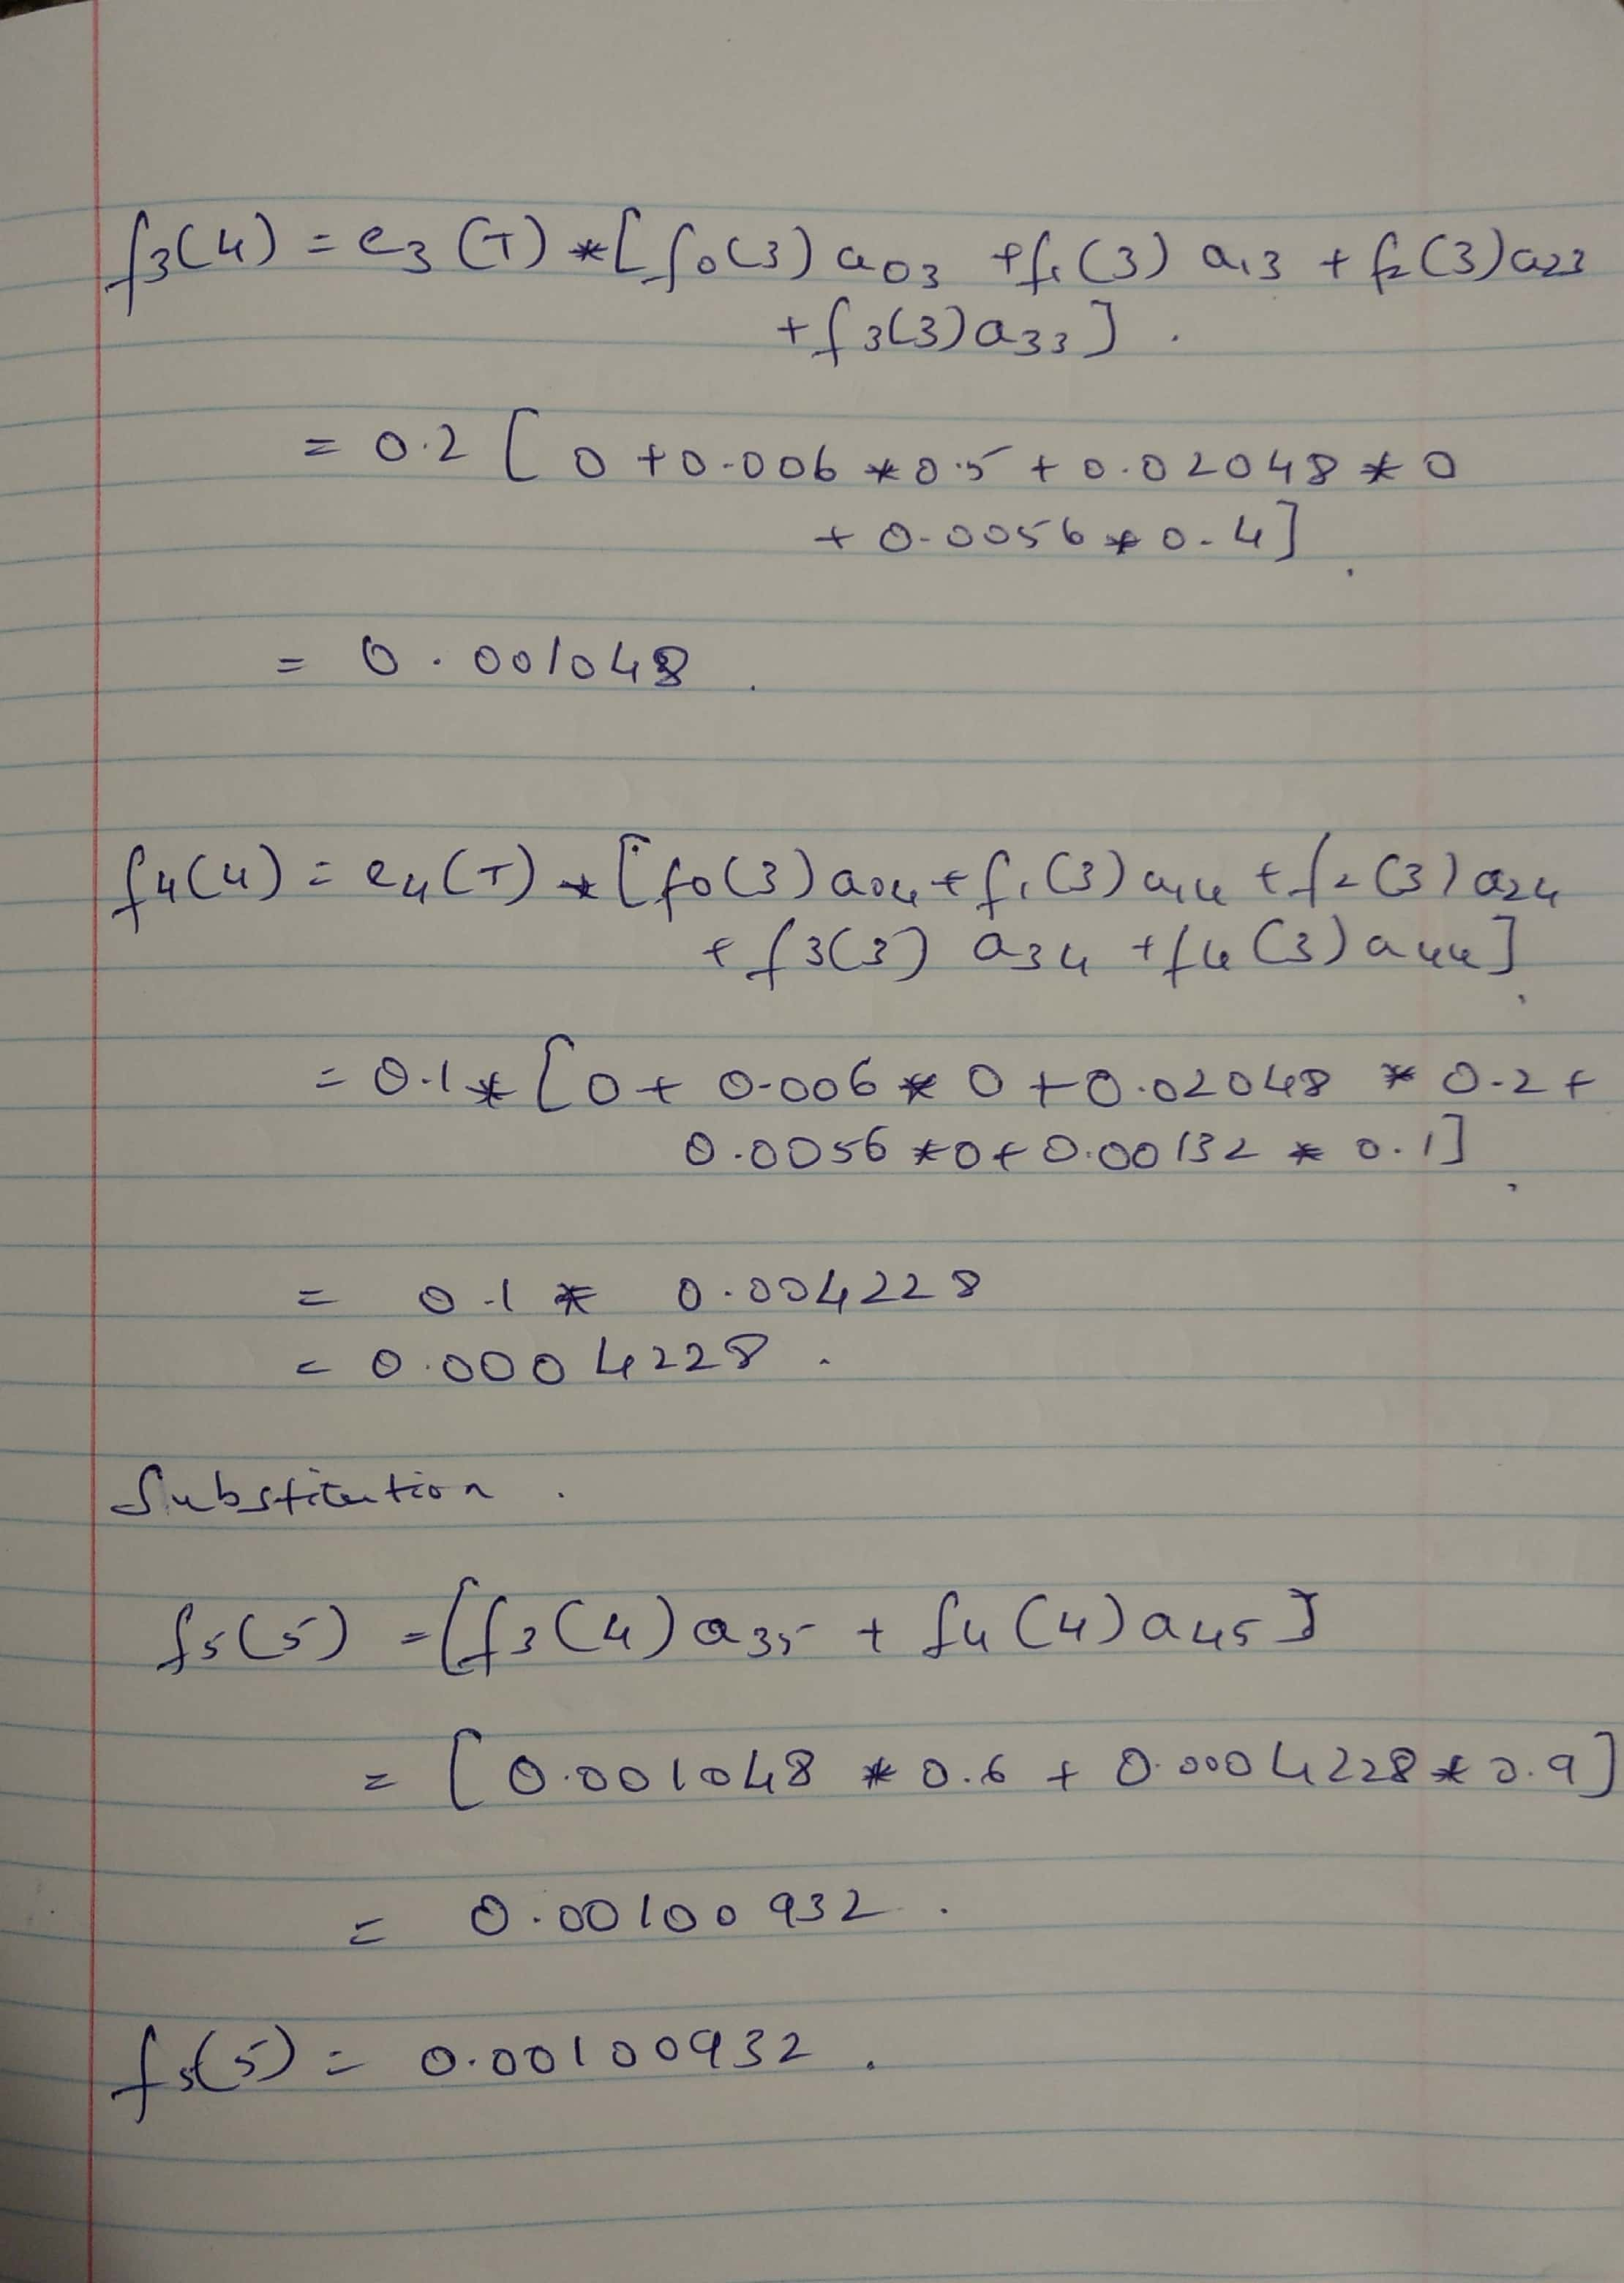 f₃(4) = e₃(T) * [f₀(3) a₀₃ + f₁(3) a₁₃ + f₂(3) a₂₃
+ f₃(3) a₃₃] .
= 0.2 [0 + 0.006 * 0.5 + 0.02048 * 0
+ 0.0056 * 0.4]
= 0.001048 .
f₄(4) = e₄(T) * [f₀(3) a₀₄ + f₁(3) a₁₄ + f₂(3) a₂₄
+ f₃(3) a₃₄ + f₄(3) a₄₄]
= 0.1 * [0 + 0.006 * 0 + 0.02048 * 0.2 +
0.0056 * 0 + 0.00132 * 0.1]
= 0.1 * 0.004228
= 0.0004228 .
Substitution .
f₅(5) = [f₃(4) a₃₅ + f₄(4) a₄₅]
= [0.001048 * 0.6 + 0.0004228 * 0.9]
= 0.00100932 .
f₅(5) = 0.00100932 .